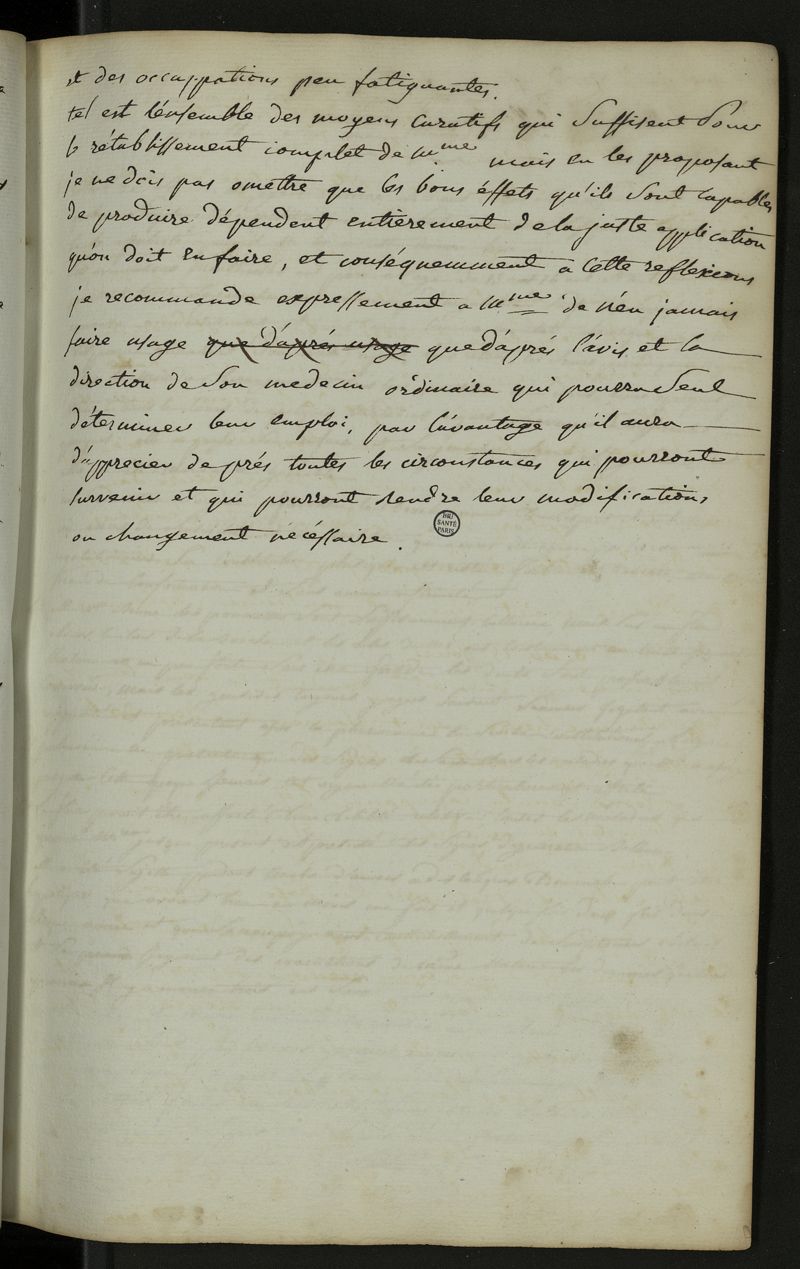 et des occuppations peu fatiguantes.
tel est l'énsemble des moyens curatifs qui suffisent pour
le rétablissement complet de mme mais en les proposant
je ne dois pas omettre que les bons éffets qu'ils sont capables
de produire dépendent entièrement de la juste application
qu'on doit en faire, et conséquemment a cette reflexions
je recommande expressement a mme de n'én jamais
faire usage que d'áprés usage que d'áprés l'ávis et la
direction de son medecin ordinaire qui pourra seul
déterminer leur emploi, par l'ávantage qu'il aura
d'ápprecier de prés toutes les circonstances qui pourront
survenir et qui pourront rendre leur modifications
ou changement necéssaire.
BIU
SANTÉ
PARIS